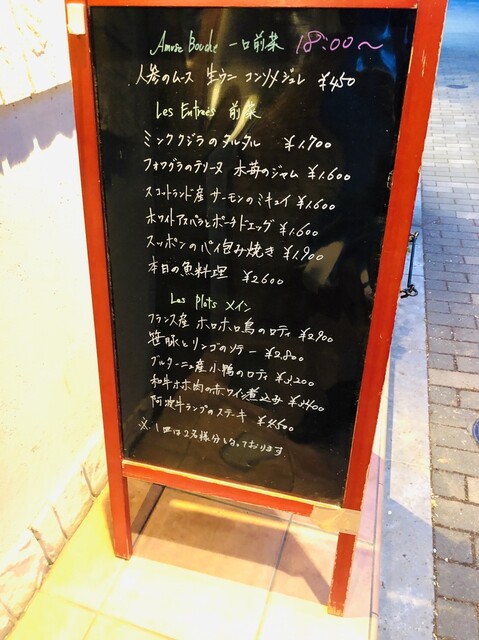 Amuse Bouche 一口前菜 18:00〜
人参のムース 生ウニ コンソメジュレ ¥450
Les Entrées 前菜
ミンククジラのタルタル ¥1,700
フォワグラのテリーヌ 木苺のジャム ¥1,600
スコットランド産 サーモンのミキュイ ¥1,600
ホワイトアスパラとポーチドエッグ ¥1,600
スッポンのパイ包み焼き ¥1,900
本日の魚料理 ¥2600
Les Plats メイン
フランス産 ホロホロ鳥のロティ ¥2,900
笹豚とリンゴのソテー ¥2,800
ブルターニュ産 小鴨のロティ ¥3,200
和牛ホホ肉の赤ワイン煮込み ¥3,400
阿波牛ランプのステーキ ¥4,500
※1皿は2名様分となっております